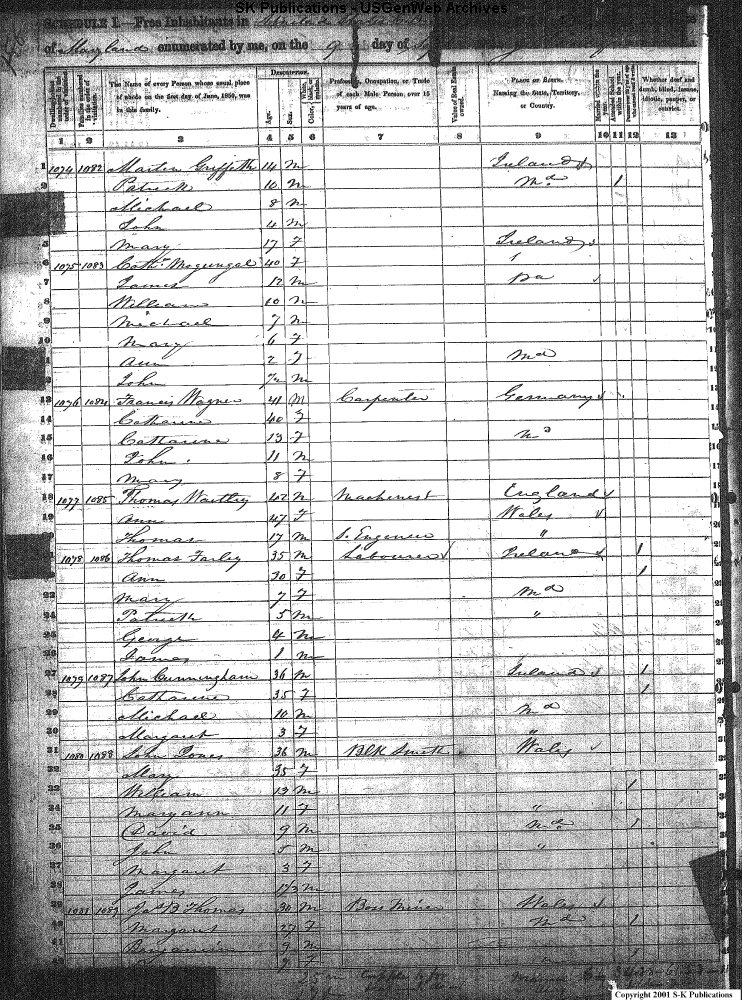 SK Publications - USGenWeb Archives
SCHEDULE I.—Free Inhabitants in
of Maryland enumerated by me, on the 9 day of
Dwelling-houses numbered in the order of visitation.
Families numbered in the order of visitation.
The Name of every Person whose usual place of abode on the first day of June, 1850, was in this family.
DESCRIPTION.
Age.
Sex.
Color, White, black, or mulatto.
Profession, Occupation, or Trade of each Male Person over 15 years of age.
Value of Real Estate owned.
PLACE OF BIRTH. Naming the State, Territory, or Country.
Married within the year.
Attended School within the year.
Whether deaf and dumb, blind, insane, idiotic, pauper, or convict.
1 2 3 4 5 6 7 8 9 10 11 12 13
1 1074 1082 Martin Griffeth 14 M Ireland
2 Patrick 10 M Md 1
Michael 8 M
John 4 M
5 Mary 17 F Ireland
6 1075 1083 Cath. 40 F
7 James 12 M Pa
8 William 10 M
9 Michael 7 M
10 Mary 6 F
Ann 2 F Md
John M
13 1076 1084 Francis Wagner 41 M Carpenter Germany
14 Catharine 40 F
15 Catharine 13 F Md
16 John 11 M
17 Mary 8 F
18 1077 1085 Thomas 42 M Machenest England
Ann 47 F Wales
Thomas 17 M S. Engineer "
1078 1086 Thomas Farley 35 M Labourer Ireland 1
Ann 30 F 1
23 Mary 7 F Md
24 Patrick 5 M "
25 George 4 M
26 James 1 M
27 1079 1087 John Cunningham 36 M Ireland 1
28 Catharine 35 F 1
29 Michael 10 M Md
30 Margaret 3 F "
31 1080 1088 John Jones 36 M Blk Smith Wales
32 Mary 35 F
33 William 13 M 1
34 Maryann 11 F "
35 David 9 M Md 1
36 John 5 M "
37 Margaret 3 F
38 James M
39 1081 1089 Jas B Thomas 30 M Boss Miner Wales
40 Margaret 27 F Md 1
41 Benjamin 9 M
Copyright 2001 S-K Publications